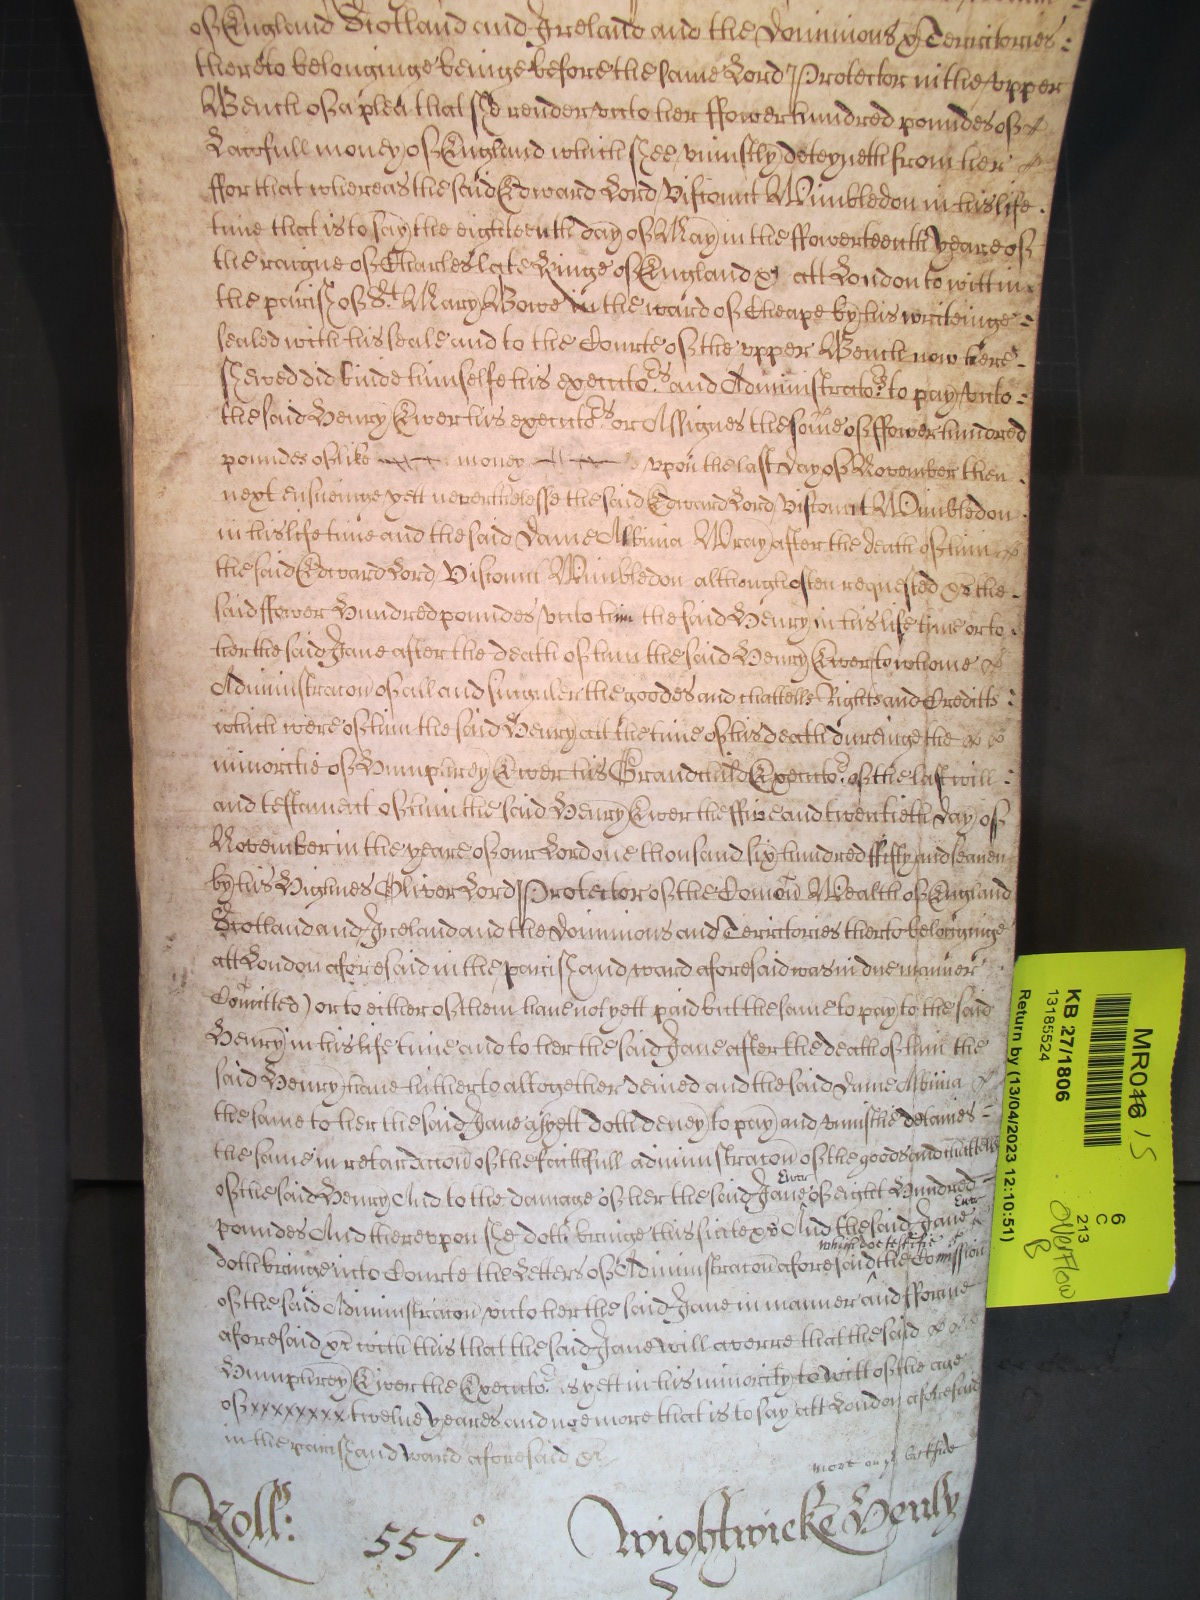 of England Scotland and Ireland and the Dominions & Territories
thereto belonginge beinge before the same Lord Protector in the upper
Bench of a plea that she render unto her ffower hundred poundes of
Lawfull money of England which shee uniustly deteyneth from her
ffor that whereas the said Edward Lord Viscount Wimbledon in his life
time that is to say the eighteenth day of May in the ffowerteenth yeare of
the raigne of Charles late Kinge of England &c att London to witt in
the parish of St. Mary Bowe in the ward of Cheape by his writeinge
sealed with his seale and to the Courte of the upper Bench now here
shewed did binde himselfe his executors and Administrators to pay unto
the said Henry Ewer his executors or Assignes the some of ffower hundred
poundes of like money upon the last day of November then
next ensueinge yett neverthelesse the said Edward Lord Viscount Wimbledon
in his life time and the said Dame Albinia Wray after the death of him
the said Edward Lord Viscount Wimbledon although often requested &c the
said ffower Hundred poundes unto him the said Henry in his life time or to
her the said Jane after the death of him the said Henry Ewer to whome
Administracon of all and singuler the goodes and chattells Rights and Creditts
which were of him the said Henry att the time of his death dureinge the
minoritie of Humphrey Ewer his Grandchild Executor of the last will
and testament of him the said Henry Ewer the ffive and twentieth day of
November in the yeare of our Lord one thousand six hundred ffifty and seaven
by his Highnes Oliver Lord Protector of the Comon Wealth of England
Scotland and Ireland and the Dominions and Territories therto belonginge
att London aforesaid in the parish and ward aforesaid was in due manner
Comitted) or to either of them have not yett paid but the same to pay to the said
Henry in his life time and to her the said Jane after the death of him the
said Henry have hitherto altogether denied and the said Dame Albinia
the same to her the said Jane as yett doth deney to pay and uniustlie detaines
the same in retardacon of the faithfull administracon of the goods and chattells
of the said Henry And to the damage of her the said Jane Ewer of eight Hundred
poundes And thereupon she doth bringe this suite &c And the said Jane Ewer
doth bringe into Courte the Letters of Administracon aforesaid which doe testifie the Comission
of the said Administracon unto her the said Jane in manner and fforme
aforesaid &c with this that the said Jane will averre that the said
Humphrey Ewer the Executor is yett in his minority to witt of the age
of xxxxxxxxx twelve yeares and noe more that is to say att London aforesaid
in the parish and ward aforesaid &c
more on ye backside
Rolls: 557.
Wightwicke Henly
MR046 15
KB 27/1806
13185524
Return by (13/04/2023 12:10:51)
6
C
213
Overflow
B